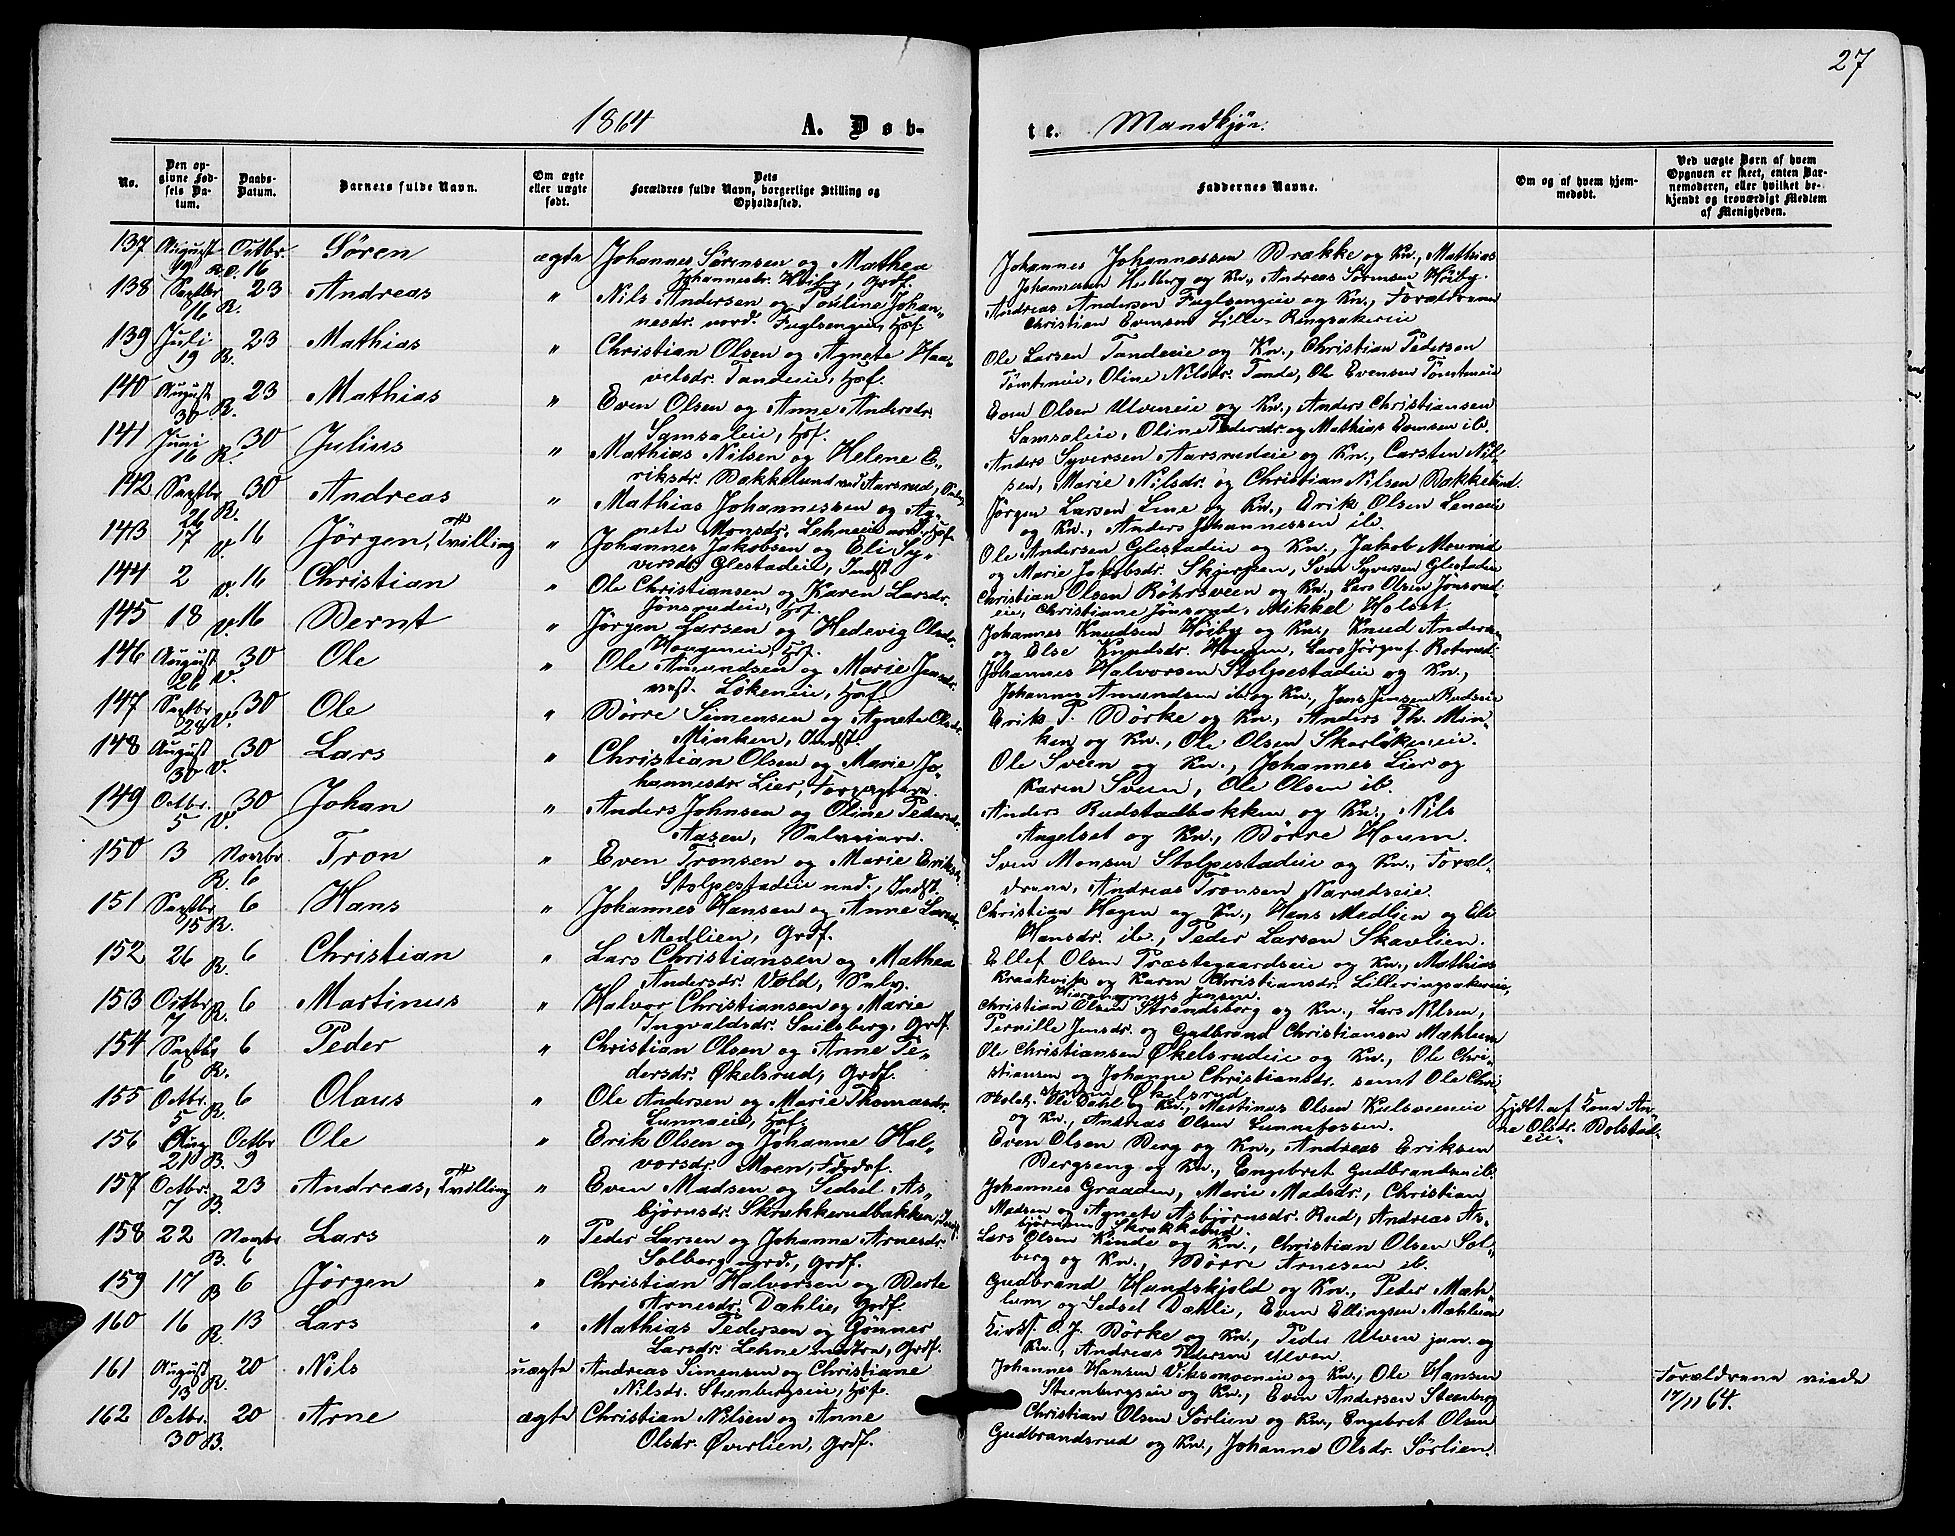 27
1864 A. Døb-
te. Mandkjøn.
No.
Den opgivne Fødsels Datum.
Daabs-Datum.
Barnets fulde Navn.
Om ægte eller uægte født.
Dets Forældres fulde Navn, borgerlige Stilling og Opholdssted.
Faddernes Navne.
Om og af hvem hjemmedøbt.
Ved uægte Børn af hvem Opgaven er skeet, enten Barnemoderen, eller hvilket bekjendt og troværdigt Medlem af Menigheden.
137 August 19 R. Octbr. 16 Søren ægte Johannes Sørensen og Mathea
Johannesdr. Høiby, Grdf.
Johannes Johannessen Brække og Kn., Mathias
Johannessen Hesberg og Kn., Andreas Sørensen Høiby.
138 Septbr 16 R. 23 Andreas " Nils Andersen og Pauline Johan-
nesdr. nord. Fuglsengeie, Hsf.
Andreas Andersen Fuglsengeie og Kn., Forældrene
Christian Evensen Lille-Ringsakereie
139 Juli 19 R. 23 Mathias " Christian Olsen og Agnete Haa-
velsdr. Tandeeie, Hsf.
Ole Larsen Tandeeie og Kn., Christian Pedersen
Tømteneie, Oline Nilsdr. Tande, Ole Evensen Tømteneie
140 August 30 R. 23 Mathias " Even Olsen og Anne Andersdr.
Samsaleie, Hsf.
Even Olsen Ulveneie og Kn., Anders Christiansen
Samsaleie, Oline Pedersdr. og Mathias Evensen ib.
141 Juni 16 R. 30 Julius " Mathias Nilsen og Helene E-
riksdr. Bakkelund ved Aarsrud,
Anders Syversen Aarsrudeie og Kn., Carsten Nil-
sen, Marie Nilsdr. og Christian Nilsen Bakkelund.
142 Septbr 26 R. 30 Andreas " Mathias Johannessen og Ag-
nete Monsdr. Lehneeie nord., Hsf.
Jørgen Larsen Line og Kn., Erik Olsen Leneeie
og Kn., Anders Johannessen ib.
143 17 V. 16 Jørgen, Tvilling " Johannes Jakobsen og Eli Sy-
versdr. Glestadeie, Indst.
Ole Andersen Glestadeie og Kn., Jakob
og Marie Jakobsdr. Skjerpen, Sven Syversen Glestadeie
144 2 V. 16 Christian " Ole Christiansen og Karen Larsdr.
Jønsrudeie, Hsf.
Christian Olsen Røhrsveen og Kn., Lars Olsen Jønsrud-
eie, Christiane Jønsrud, Mikkel Holset
145 18 V. 16 Bernt " Jørgen Larsen og Hedevig Olsdr.
Hougeneie, Hsf.
Johannes Knudsen Høiby og Kn., Knud Andersen
og Else Knudsdr. Hougen, Lars Jørgens. Roterud.
146 August 26 V. 30 Ole " Ole Amundsen og Marie Jensdr.
Løkeneie, Hsf.
Johannes Halvorsen Stolpestadeie og Kn.,
Johannes Amundsen ib. og Kn., Jens Jensen Rudseie
147 Septbr 24 V. 30 Ole " Børre Simensen og Agnete Olsdr.
Minken, Indst.
Erik P. Børke og Kn., Anders Th. Min-
ken og Kn., Ole Olsen Skarløkeneie.
148 August 30 V. 30 Lars " Christian Olsen og Marie Jo-
hannesdr. Lier,
Ole Sveen og Kn., Johannes Lier og
Karen Sveen, Ole Olsen ib.
149 Octbr. 5 V. 30 Johan " Anders Johnsen og Oline Pedersdr.
Aasen, Selveiere.
Anders Rudstadbakken og Kn., Nils
Angelset og Kn., Børre Houm.
150 3 R. Novbr. 6 Tron " Even Tronsen og Marie Eriksdr.
Stolpestadeie, Indst.
Sven Monsen Stolpestadeie og Kn., Foræl-
drene, Andreas Tronsen Narudseie.
151 Septbr 15 R. 6 Hans " Johannes Hansen og Anne Larsdr.
Medlien, Grdf.
Christian Hagen og Kn., Hans Medlien og Eli
Hansdr. ib., Peder Larsen Skavlien.
152 26 R. 6 Christian " Lars Christiansen og Mathea
Andersdr. Vold, Selv.
Ellef Olsen Præstegaardseie og Kn., Mathias
Kraakvisa og Karen Christiansdr. Lilleringsakereie,
153 Octbr 7 R. 6 Martinus " Halvor Christiansen og Marie
Ingvaldsdr. Snilsberg, Grdf.
Christian Olsen Strandsborg og Kn., Lars Nilsen,
Pernille Jensdr. og Gudbrand Christiansen Mæhlum
154 Septbr 6 R. 6 Peder " Christian Olsen og Anne Pe-
dersdr. Økelsrud, Grdf.
Ole Christiansen Økelsrudeie og Kn., Ole Chri-
stiansen og Johanne Christiansdr. samt Ole Chri-
stiansen Økelsrud.
155 Octbr. 5 R. 6 Olaus " Ole Andersen og Marie Thomasdr.
Lunneeie, Hsf.
Ole Dahl og Kn., Martinus Olsen Kulsveeneie
og Kn., Andreas Olsen Lunnefossen.
Hjdt. af Kone An-
ne Olsdr. Bolstad-
eie.
156 Aug 21 B. Octbr 9 Ole " Erik Olsen og Johanne Hal-
vorsdr. Moen,
Even Olsen Berg og Kn., Andreas Eriksen
Bergseng og Kn., Engebret Gudbrandsen ib.
157 Octbr. 7 B. 23 Andreas, Tvilling " Even Madsen og Sidsel As-
bjørnsdr. Skrækkerudbakken, Indst.
Johannes Graaden, Marie Madsdr., Christian
Madsen og Agnete Asbjørnsdr. Rud, Andreas As-
bjørnsen Skrækkerud.
158 22 B. Novbr 6 Lars " Peder Larsen og Johanne Arnesdr.
Solberg nord., Grdf.
Lars Olsen Kinde og Kn., Christian Olsen Sol-
berg og Kn., Børre Arnesen ib.
159 17 B 6 Jørgen " Christian Halvorsen og Berte
Arnesdr. Dæhlie, Grdf.
Gudbrand Hundskjold og Kn., Peder Mæh-
lum og Sidsel Dæhli, Even Ellingsen Mæhlum
160 16 R. 13 Lars " Mathias Pedersen og Gønner
Larsdr. Lehne nedre, Grdf.
Kirks. O. J. Børke og Kn., Peder Ulven jun. og
Kn., Andreas Pedersen Ulven.
161 August 13 R. 20 Nils uægte Andreas Simensen og Christiane
Nilsdr. Steenbergseie, Hsf.
Johannes Hansen Viksmoeneie og Kn., Ole Hansen
Steenbergseie og Kn., Even Andersen Steenberg
Forældrene viede
17/11 64.
162 Octbr. 30 B. 20 Arne ægte Christian Nilsen og Anne
Olsdr. Øverlien, Grdf.
Christian Olsen Sørlien og Kn., Engebret Olsen
Gudbrandsrud og Kn., Johanne Olsdr. Sørlien.